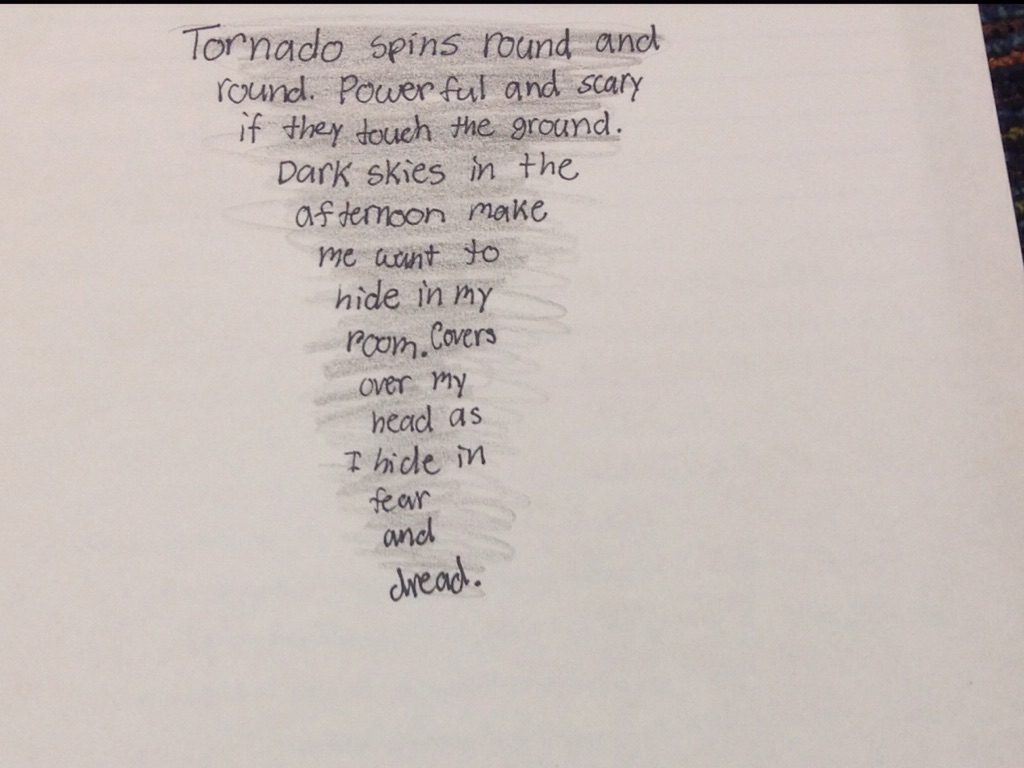 Tornado spins round and
round. Powerful and scary
if they touch the ground.
Dark skies in the
afternoon make
me want to
hide in my
room. Covers
over my
head as
I hide in
fear
and
dread.